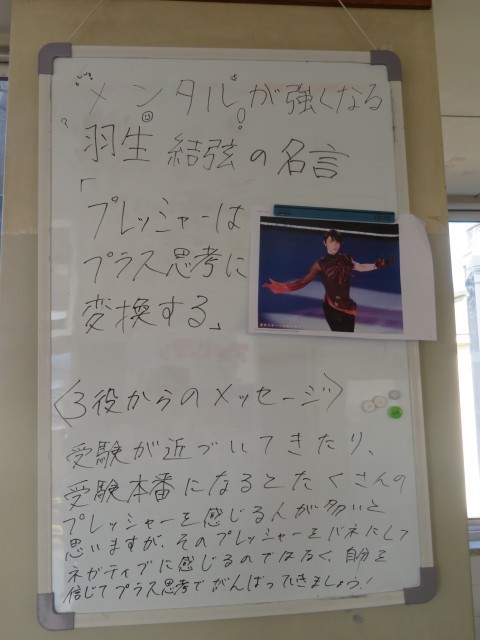 "メンタル"が強くなる
羽生結弦の名言
「プレッシャーは
プラス思考に
変換する」
〈3役からのメッセージ〉
受験が近づいてきたり、
受験本番になるとたくさんの
プレッシャーを感じる人が多いと
思いますが、そのプレッシャーをバネにして
ネガティブに感じるのではなく、自分を
信じてプラス思考でがんばっていきましょう!